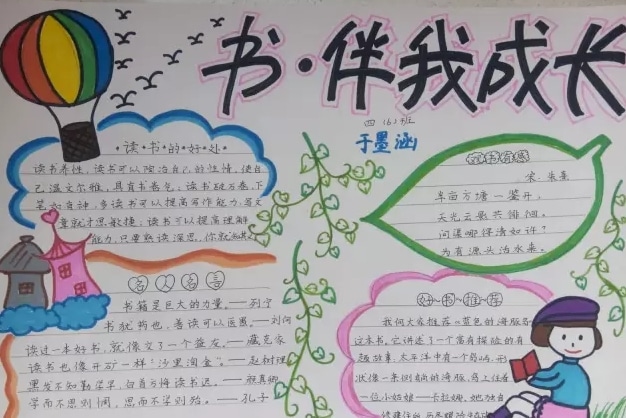 书·伴我成长
四(6)班
于墨涵
读·书·的·好·处
读书养性，读书可以陶冶自己的性情，使自
己温文尔雅，具有书卷气；读书破万卷，下
笔如有神，多读书可以提高写作能力，写文
章就才思敏捷；读书可以提高理解
能力，只要熟读深思，你就
名人名言
书籍是巨大的力量。——列宁
书犹药也，善读可以医愚。——刘向
读过一本好书，就像交了一个益友。——臧克家
读书也像开矿一样"沙里淘金"。——赵树理
黑发不知勤学早，白首方悔读书迟。——颜真卿
学而不思则罔，思而不学则殆。——孔子
观书有感
宋·朱熹
半亩方塘一鉴开，
天光云影共徘徊。
问渠哪得清如许？
为有源头活水来。
好·书·推·荐
我向大家推荐《蓝色的海豚岛》
这本书。它讲述了一个富有探险的有
趣故事。太平洋中有一个岛屿，形
状像一条侧躺的海豚。岛上住着
一位小姑娘——卡拉娜。她独自
修建住所